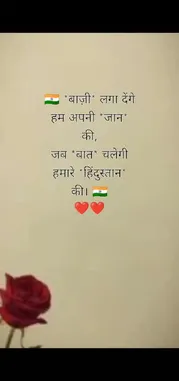 🇮🇳 "बाज़ी" लगा देंगे
हम अपनी "जान"
की,
जब "बात" चलेगी
हमारे "हिंदुस्तान"
की। 🇮🇳
❤️❤️